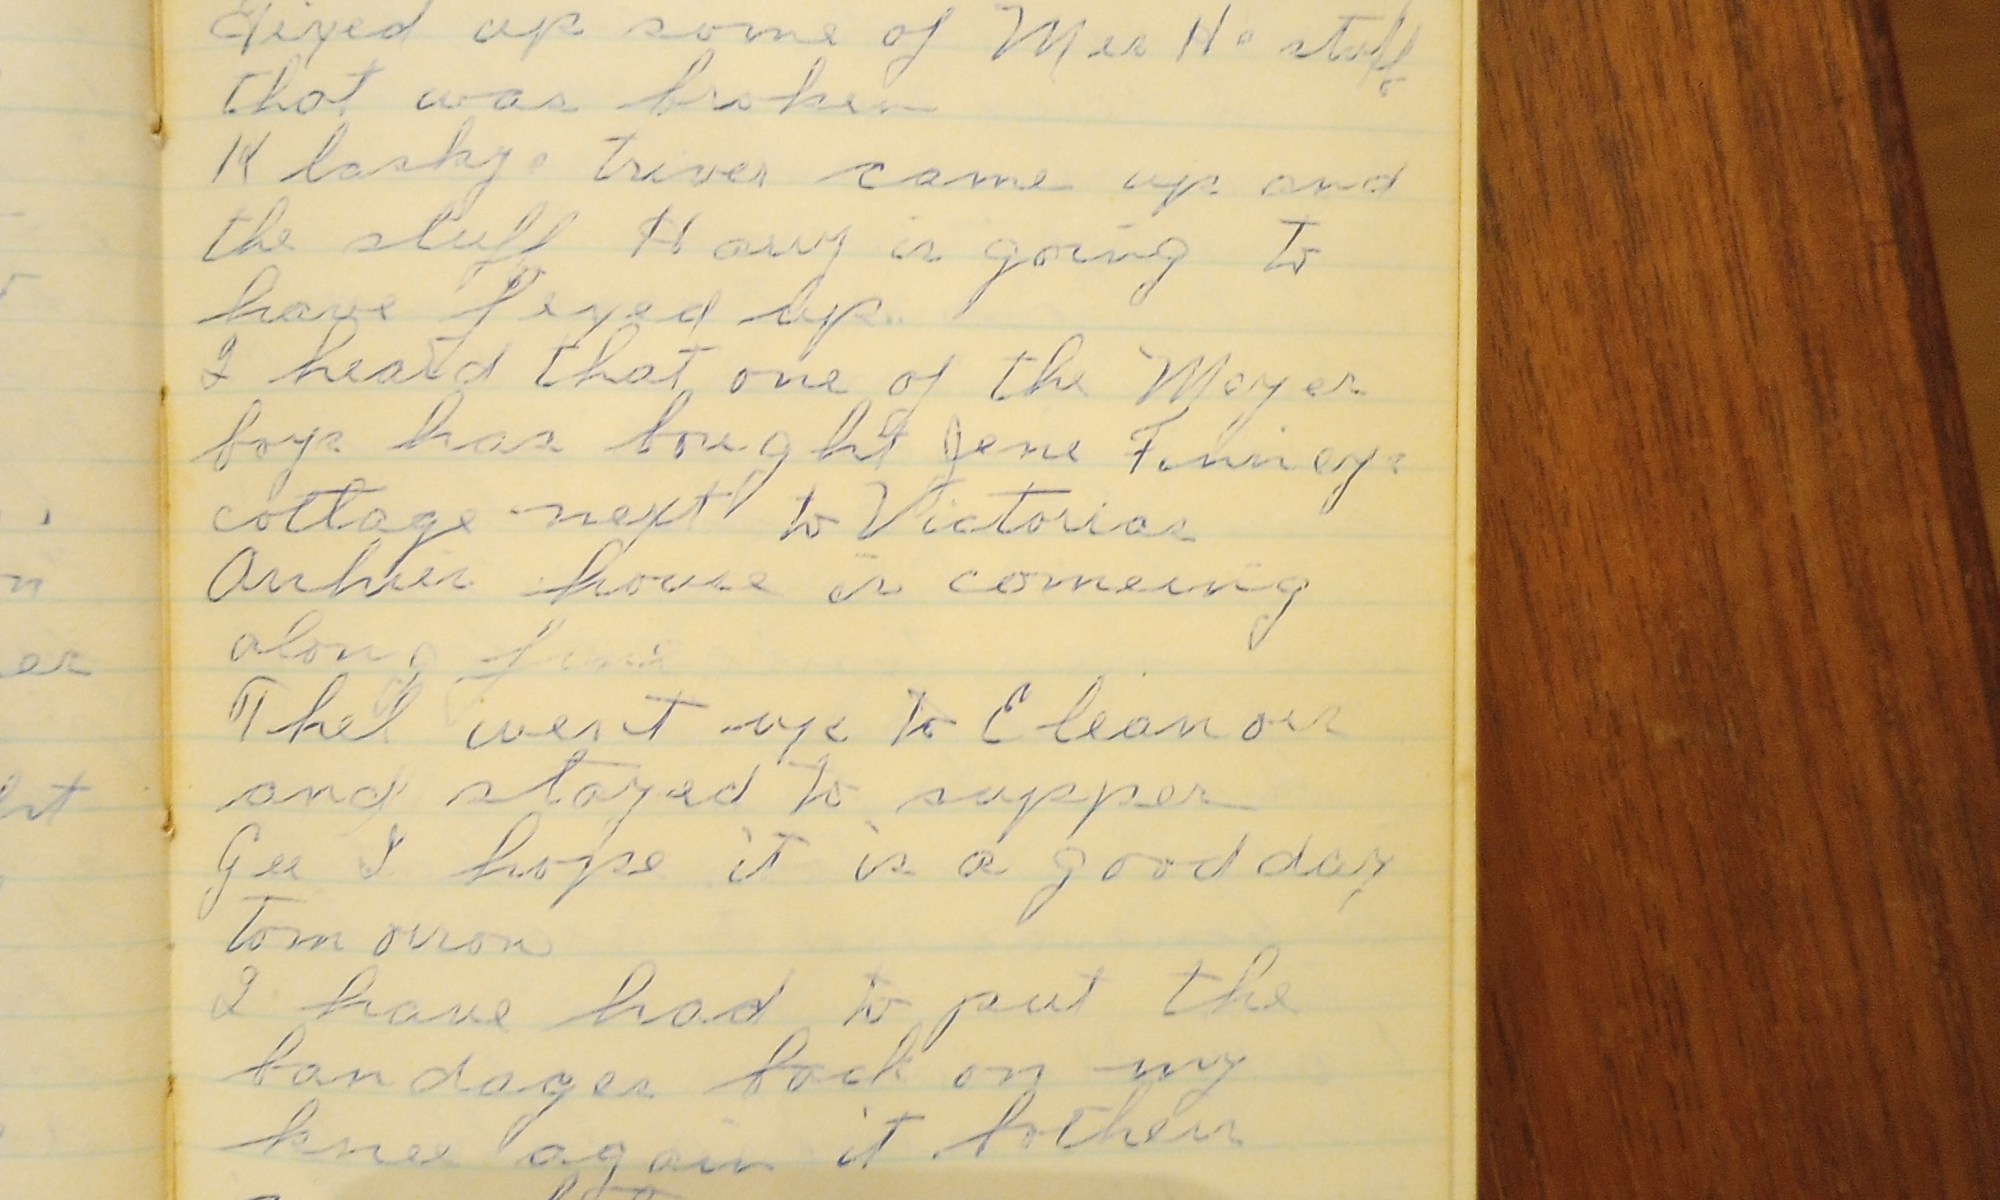 Fixed up some of Mrs Hs stuff
that was broken
Klaskys came up and
the stuff Harry is going to
have fixed up.
I heard that one of the Mayer
boys has bought Jene Finneys
cottage next to Victorias
house is comeing
along fine
Thel went up to Eleanors
and stayed to supper
Gee I hope it is a good day
tomorrow
I have had to put the
bandages back on my
knee again it bothers